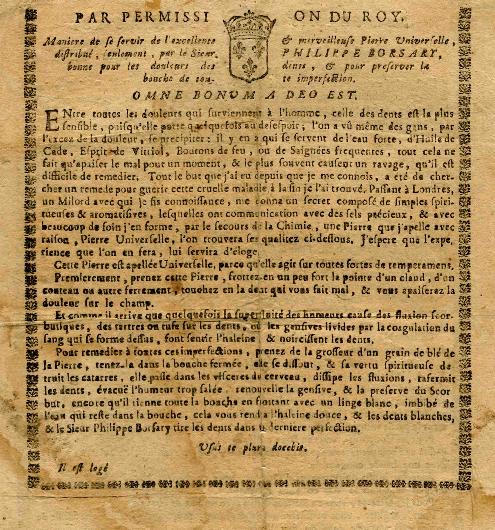 PAR PERMISSION DU ROY.
Maniere de se servir de l'excellente & merveilleuse Pierre Universelle,
distribué, seulement, par le Sieur PHILIPPE BORSARY,
bonne pour les douleurs des dents, & pour preserver la
bouche de tou- te imperfection.
OMNE BONVM A DEO EST.
ENtre toutes les douleurs qui surviennent à l'homme, celle des dents est la plus
sensible, puisqu'elle porte quelquefois au desespoir; l'on a vû même des gens, par
l'excez de la douleur, se precipiter: il y en a qui se servent de l'eau forte, d'Huile de
Cade, Esprit de Vitriol, Boutons de feu, ou de Saignées frequentes, tout cela ne
fait qu'apaiser le mal pout un moment, & le plus souvent causent un ravage, qu'il est
difficile de remedier. Tout le but que j'ai eu depuis que je me connois, a été de cher-
cher un remede pour guerir cette cruelle maladie à la fin je l'ai trouvé. Passant à Londres,
un Milord avec qui je fis connoissance, me donna un secret composé de simples spiri-
tueuses & aromatives, lesquelles ont communication avec des sels précieux, & avec
beaucoup de soin j'en forme, par le secours de la Chimie, une Pierre que j'apelle avec
raison, Pierre Universelle, l'on trouvera ses qualitez ci-dessous. J'espere que l'expe-
rience que l'on en fera, lui servira d'éloge.
Cette Pierre est apellée Universelle, parce qu'elle agit sur toutes sortes de temperamens.
Premierement, prenez cette Pierre, frottez-en un peu sur la pointe d'un claud, d'un
couteau ou autre ferrement, touchez en la dent qui vous fait mal, & vous apaiserez la
douleur sur le champ.
Et comme il arrive que quelquefois la superfluité des humeurs cause des fluxion scor-
butiques, des tartres ou tufe sur les dents, où les gensives livides par la coagulation du
sang qui se forme dessas, font sentir l'haleine & noircissent les dents.
Pour remedier à toutes ces imperfections, prenez de la grosseur d'un grain de blé de
la Pierre, tenez-la dans la bouche fermée, elle se dissout, & sa vertu spiritueuse de
truit les catarres, elle passe dans les visceres du cerveau, dissipe les fluxions, rafermit
les dents, évacuë l'humeur trop salée, renouvelle la gensive, & la preserve du Scor
but, encore qu'il tienne toute la bouche en frottant avec un linge blanc, imbibé de
l'eau qui reste dans la bouche, cela vous rend l'haleine douce, & les dents blanches,
& le Sieur Philippe Borsary tire les dents dans la derniere perfection.
Usus te plura docebit.
Il est logé